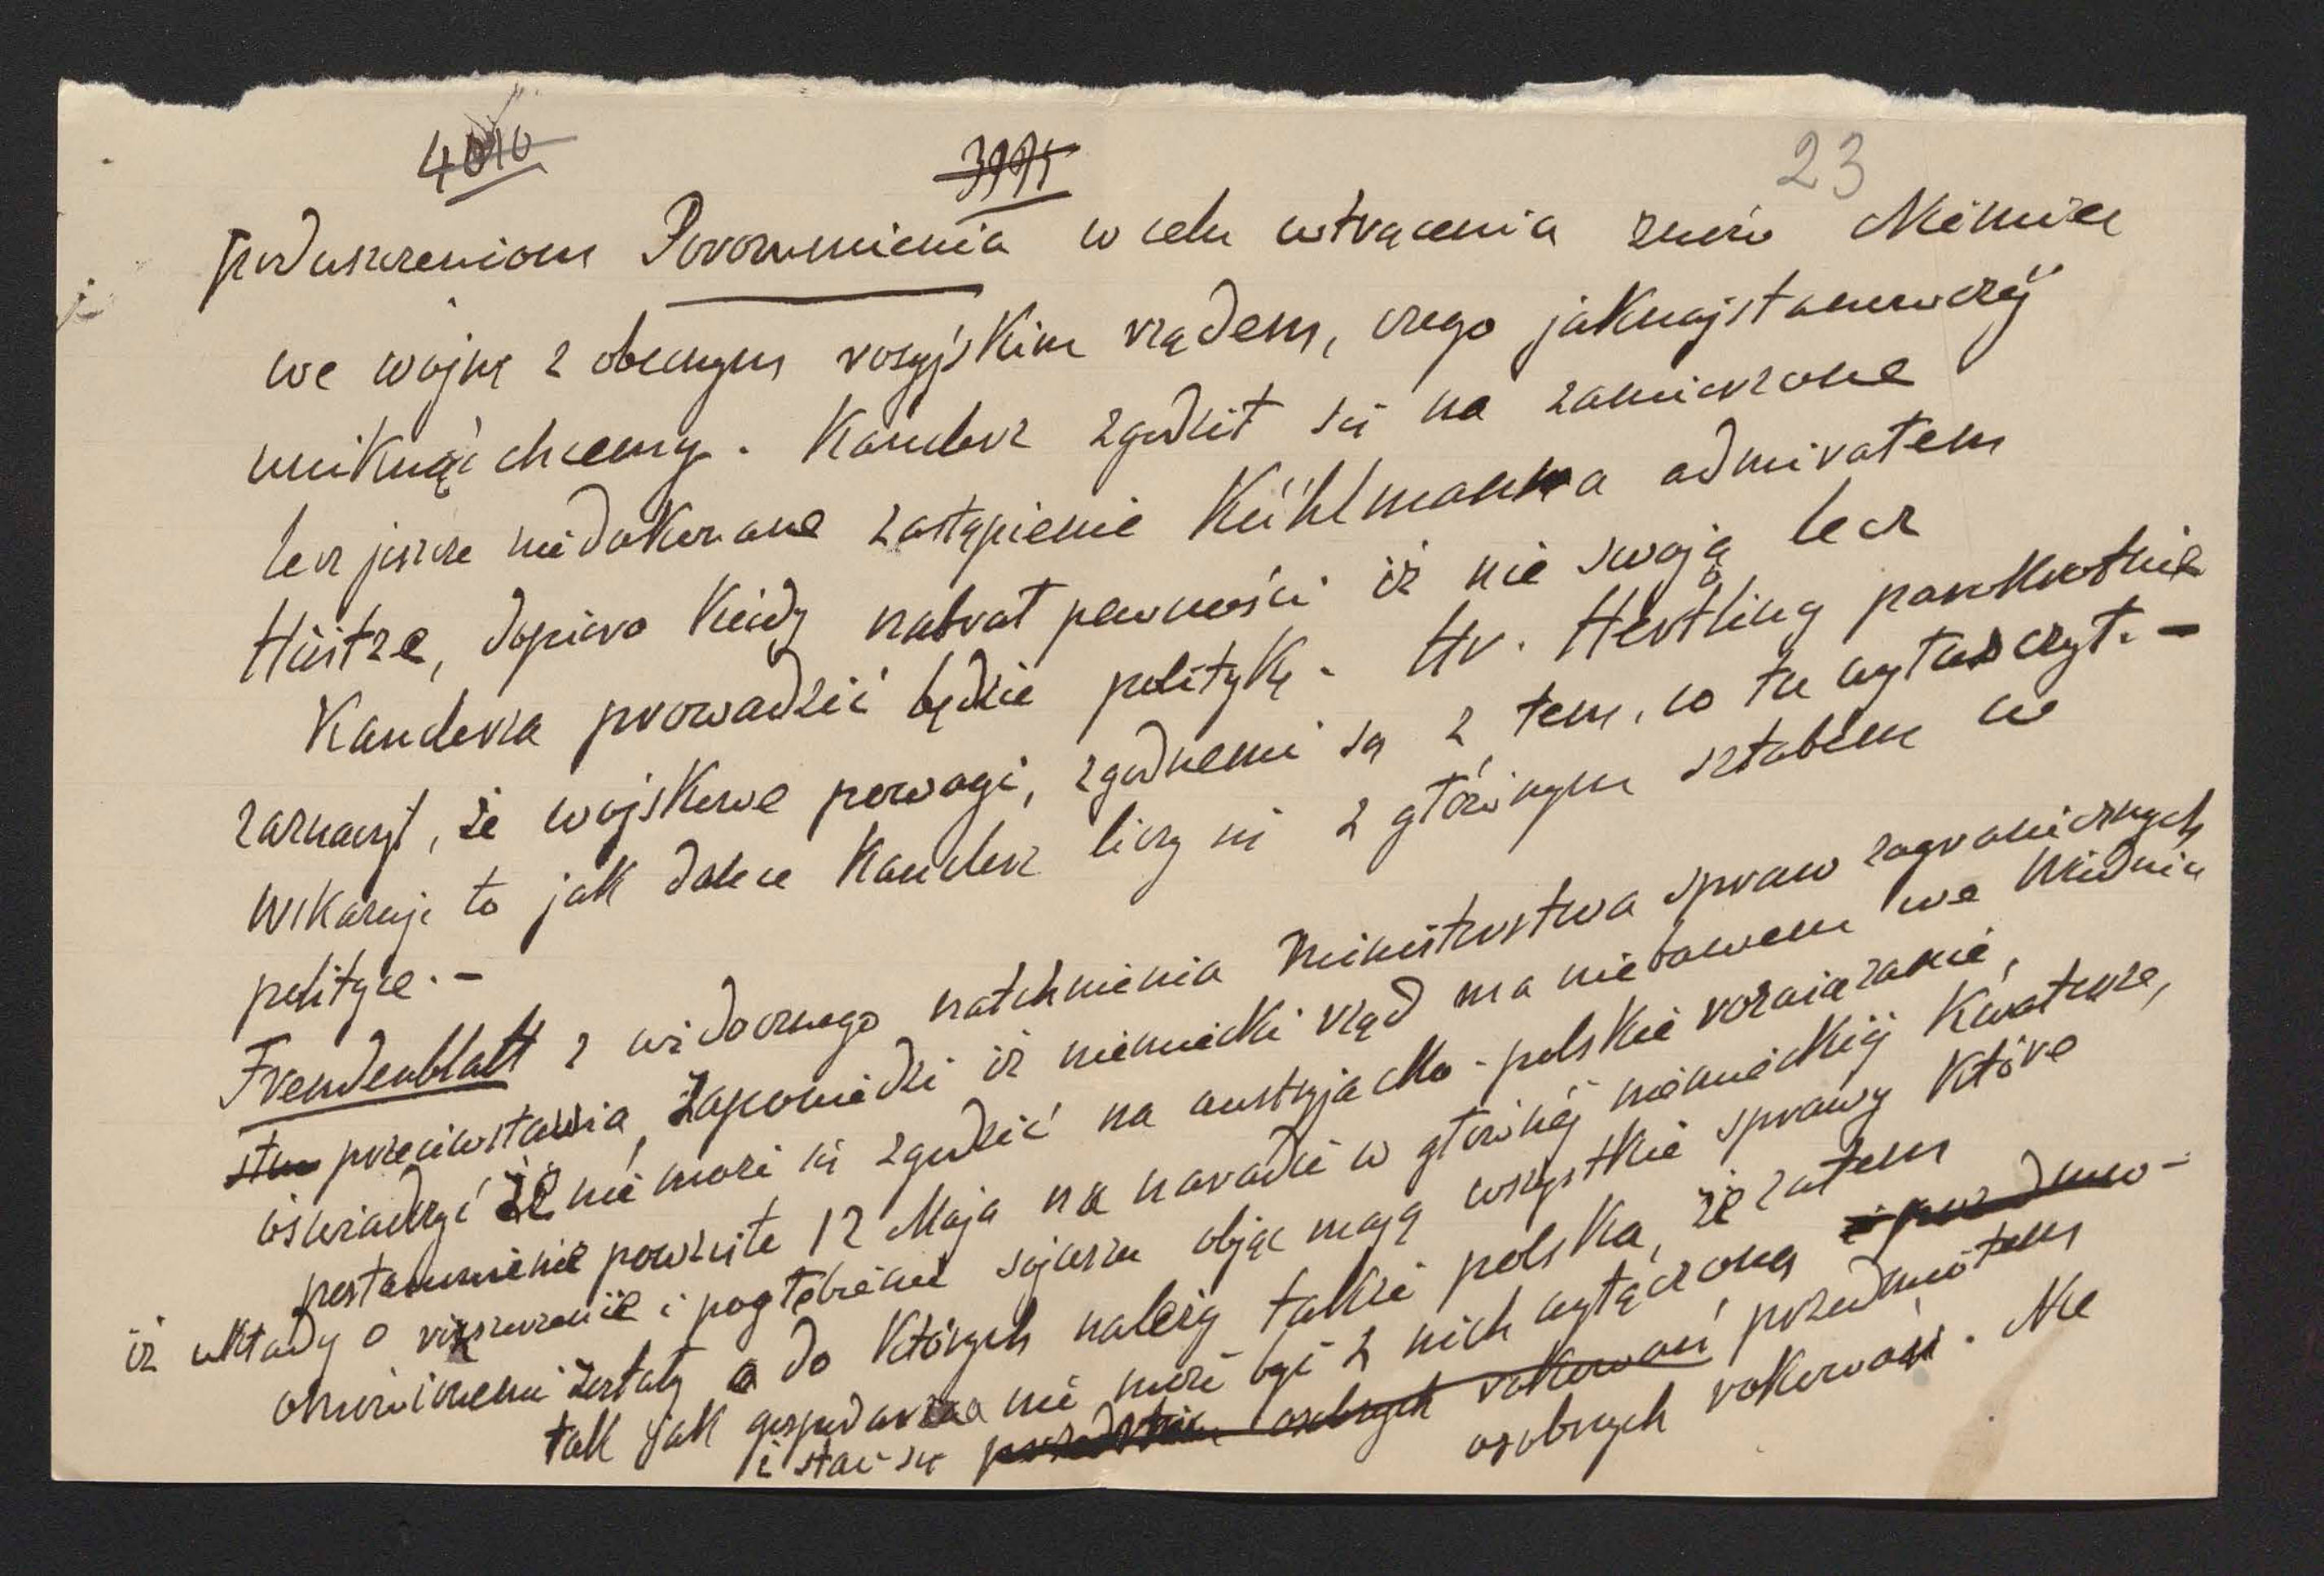 4010 3995 23
poduszczeniom Porozumienia w celu wtrącenia znów Niemiec
we wojnę z obecnym rosyjskim rządem, czego jaknajstanowczéj
uniknąć chcemy. Kanclerz zgodził się na zamierzone
lecz jeszcze niedokonane zastąpienie Kühlmanna admirałem
Hintze, dopiero kiedy nabrał pewności iż nie swoją lecz
Kanclerza prowadzić będzie politykę. Hr. Hertling
zaznaczył, że wojskowe powagi, zgodnemi są z tem, co tu wytuszczył. —
Wskazuje to jak dalece Kanclerz liczy się z głównym sztabem w
polityce. —
Fremdenblatt z widocznego natchnienia Ministerstwa spraw zagranicznych
przeciwstawia zapowiedzi iż niemiecki rząd ma niebawem we Wiedniu
oświadczyć że nie może się zgodzić na austryjacko-polskie rozwiązanie,
postanowienie powzięte 12 Maja na naradzie w głównéj niemieckiéj Kwaterze,
iż układy o rozszerzenie i pogłębienie sojuszu objąć mają wszystkie sprawy które
omówionemi zostały a do których należy także polska, że zatem
tak jak gospodarcza nie może być z nich wyłączoną
i stać się osobnych rokowań przedmiotem
osobnych rokowań. Nie